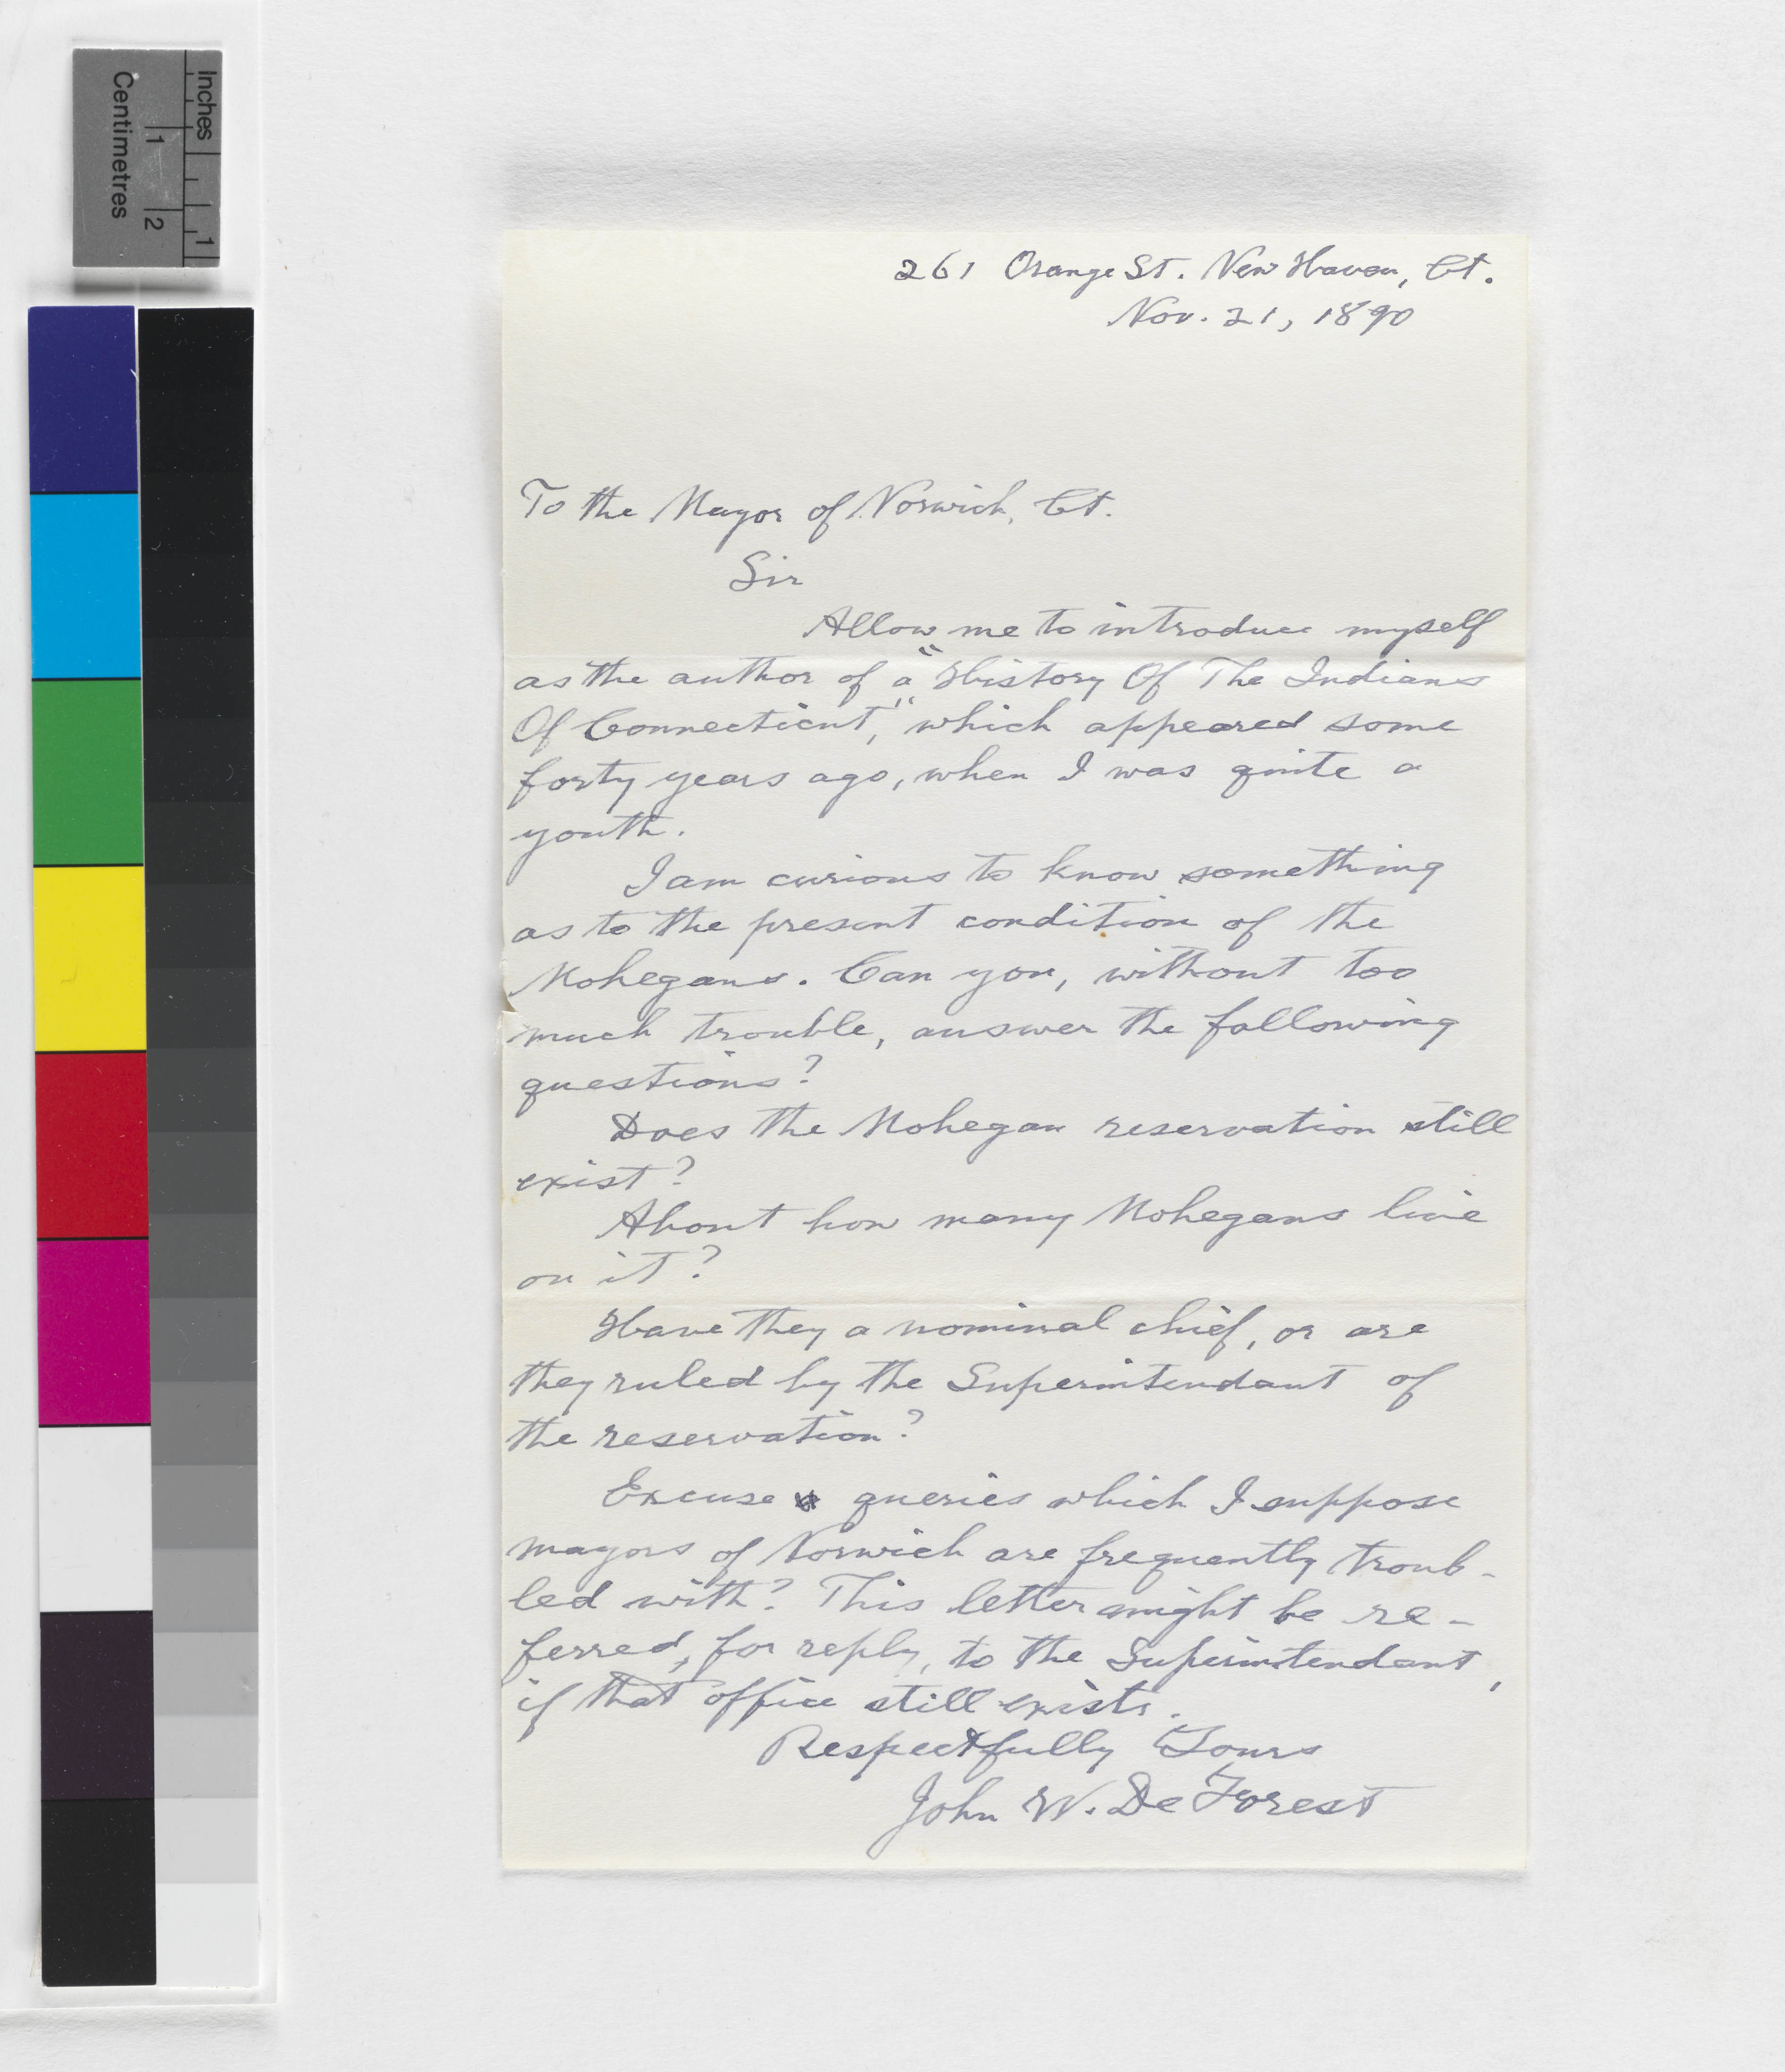 Inches
1
Centimetres
1
2
261 Orange St. New Haven, Ct.
Nov. 21, 1890
To the Mayor of Norwich, Ct.
Sir
Allow me to introduce myself
as the author of a "History Of The Indians
Of Connecticut," which appeared some
forty years ago, when I was quite a
youth.
I am curious to know something
as to the present condition of the
Mohegans. Can you, without too
much trouble, answer the following
questions?
Does the Mohegan reservation still
exist?
About how many Mohegans live
on it?
Have they a nominal chief, or are
they ruled by the Superintendant of
the reservation?
Excuse queries which I suppose
mayors of Norwich are frequently troub-
led with? This letter might be re-
ferred, for reply, to the Superintendant,
if that office still exists.
Respectfully Yours
John W. De Forest